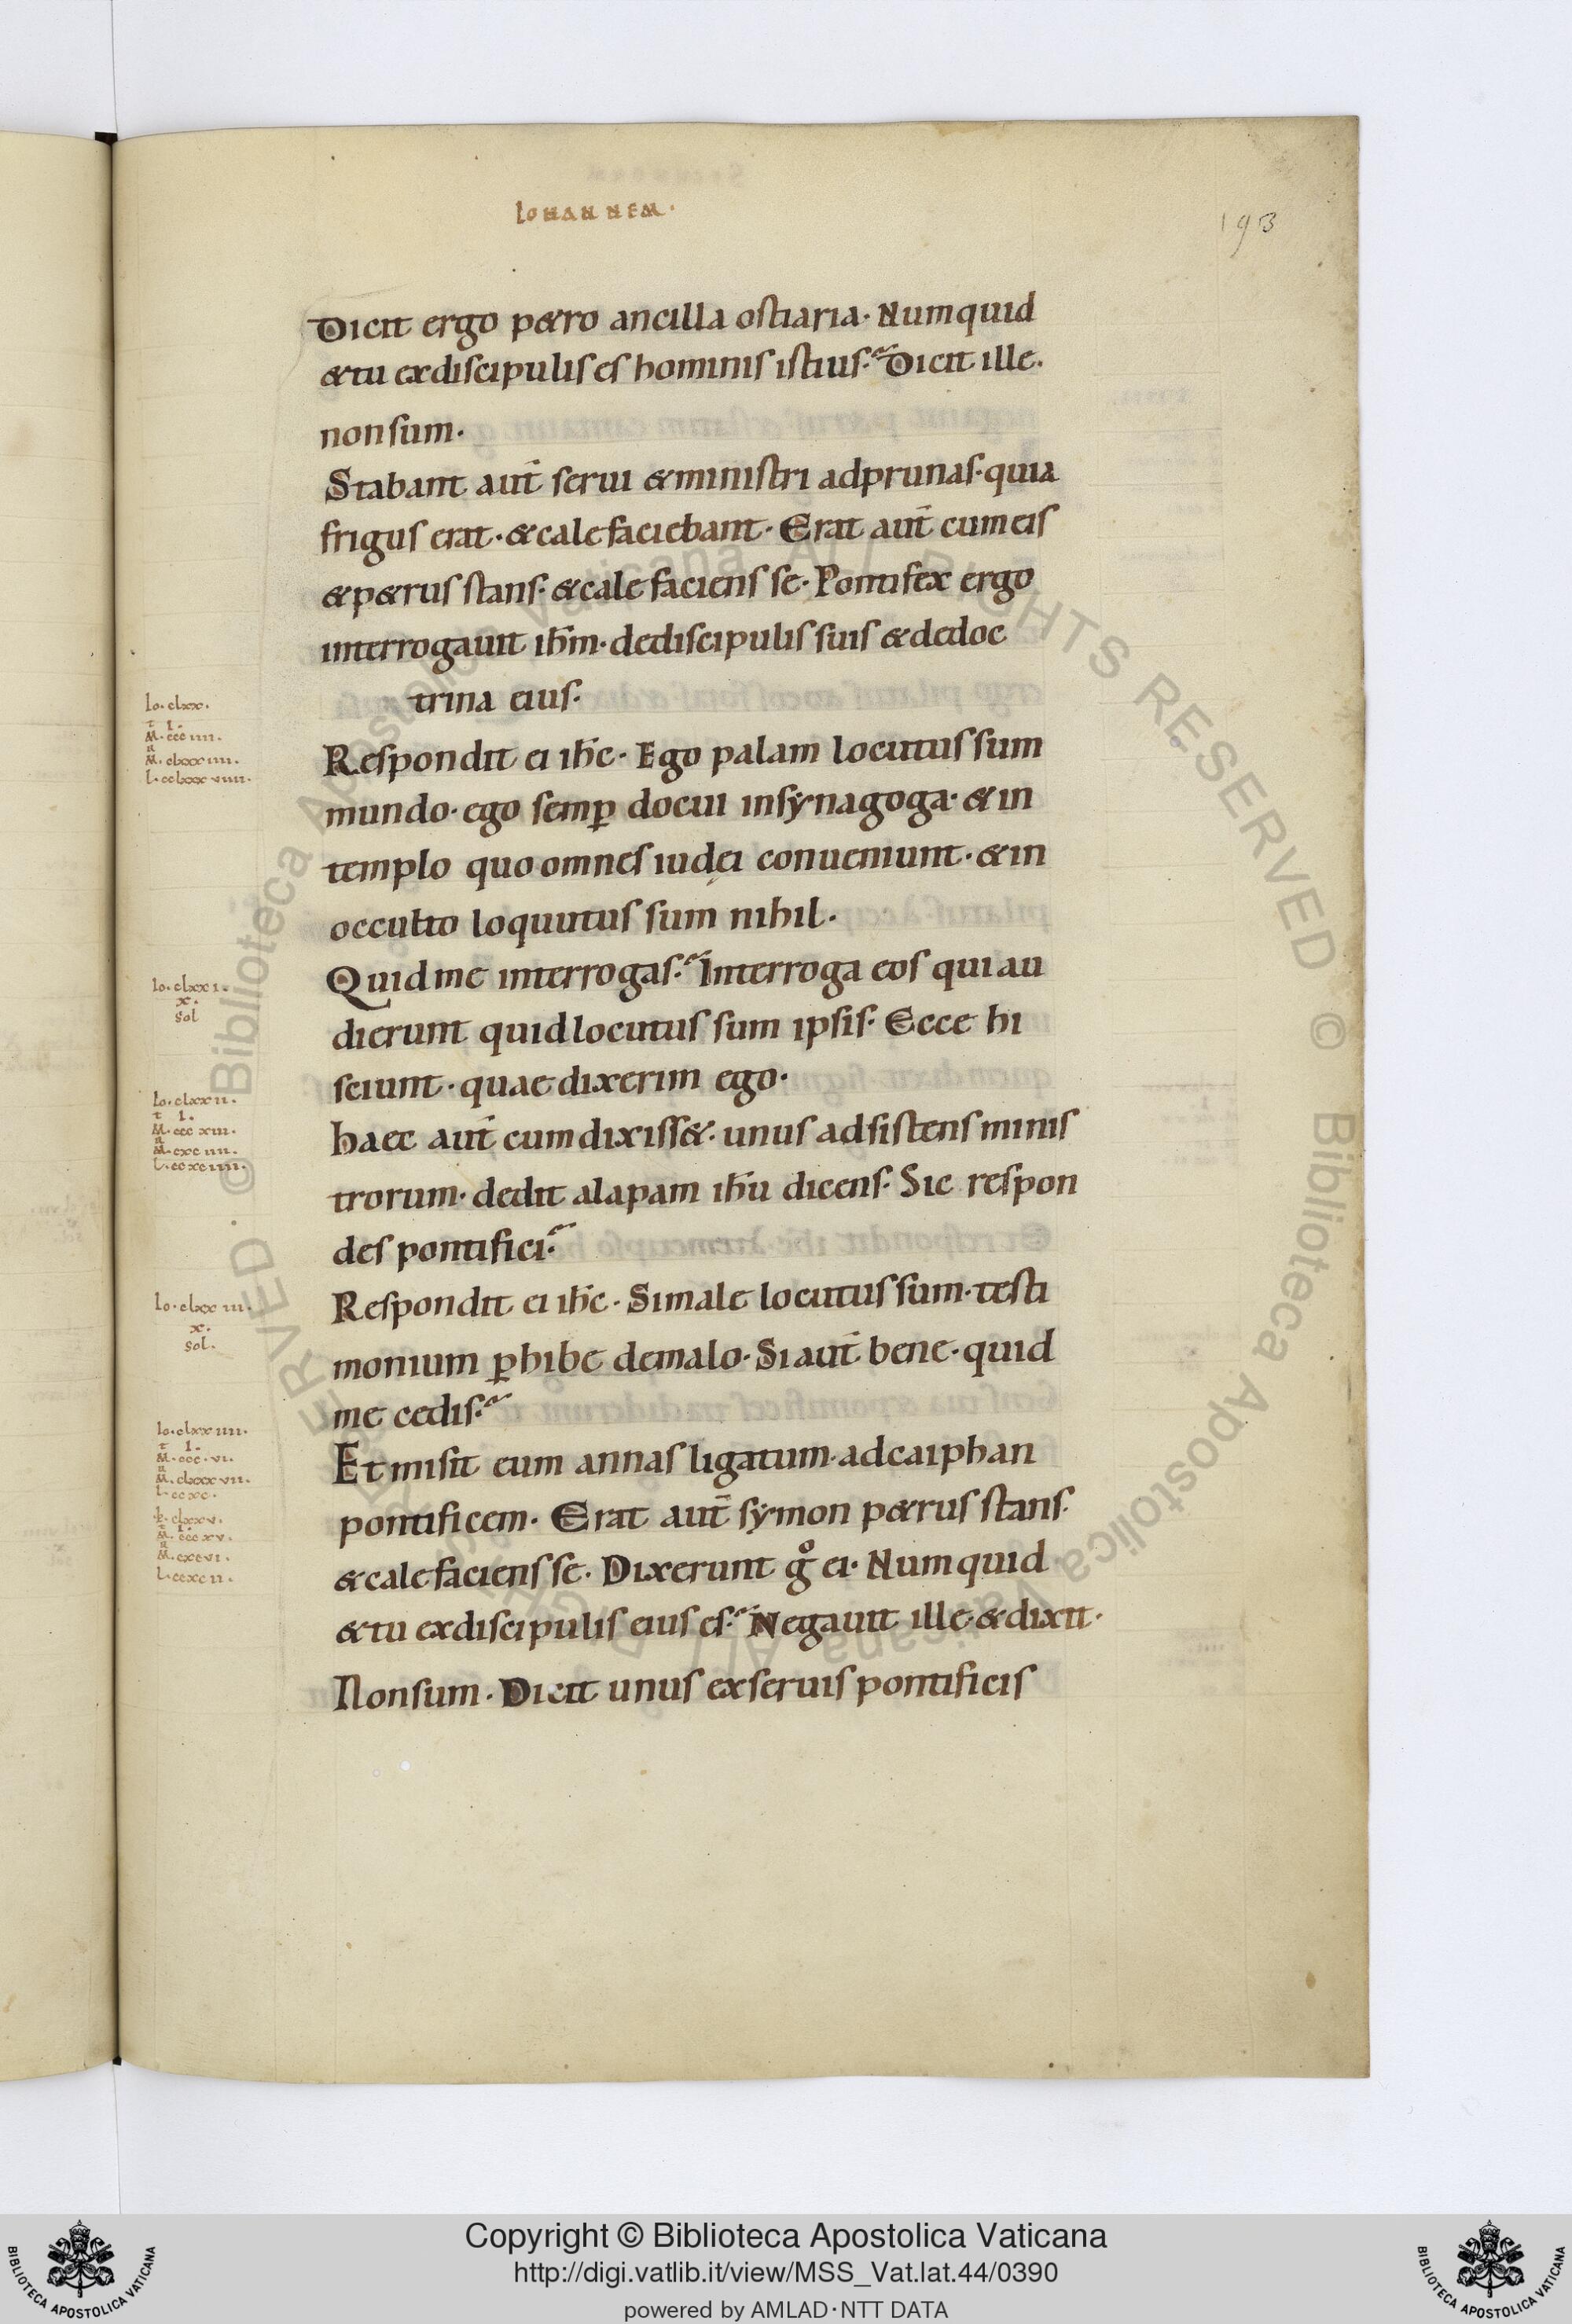 Iohannem.
193
Dicit ergo p&ro ancilla ostiaria· Numquid
&tu exdiscipulis es hominis istius? Dicit ille.
non sum·
Stabant aut̄ serui &ministri adprunas· quia
frigus erat· &calefaciebant· Erat aut̄ cumeis
&p&rus stans· &calefaciens se· Pontifex ergo
interrogauit ih̄m· dediscipulis suis &dedoc
trina eius·
Io. clxx.
t I.
M. ccc iiii.
R
M. clxxxiiii.
L. cclxxxviiii.
Respondit ei ih̄c· Ego palam locutus sum
mundo· ego semꝑ docui insẏnagoga· &in
templo quo omnes iudęi conueniunt· &in
occulto loquutus sum nihil·
Io. clxxi.
x.
sol
Quidme interrogas? Interroga eos qui au
dierunt quidlocutus sum ipsis· Ecce hi
sciunt· quae dixerim ego·
Io. clxxii.
t I.
M. ccc xiii.
R
M. cxc iiii.
L. ccxciiii.
haec aut̄ cum dixiss&· unus adsistens minis
trorum· dedit alapam ih̄u dicens· Sic respon
des pontifici?
Io. clxxiii.
x.
sol.
Respondit ei ih̄c· Simale locutus sum· testi
monium ꝑhibe demalo· Si aut̄ bene· quid
me cedis?
Io. clxxiiii.
t I.
M. ccc. vi.
R
M. clxxxvii.
L. ccxc.
Et misit eum annas ligatum· adcaiphan
pontificem· Erat aut̄ sẏmon p&rus stans·
I. clxxv.
t I.
M. cccxv.
R
M. cxcvi.
L. ccxcii.
&calefaciens se· Dixerunt g̊ ei· Numquid
&tu exdiscipulis eius es? Negauit ille &dixit·
Non sum· Dicit unus exseruis pontificis
© Biblioteca Apostolica Vaticana. ALL RIGHTS RESERVED
Copyright © Biblioteca Apostolica Vaticana
http://digi.vatlib.it/view/MSS_Vat.lat.44/0390
powered by AMLAD·NTT DATA
BIBLIOTECA APOSTOLICA VATICANA
BIBLIOTECA APOSTOLICA VATICANA